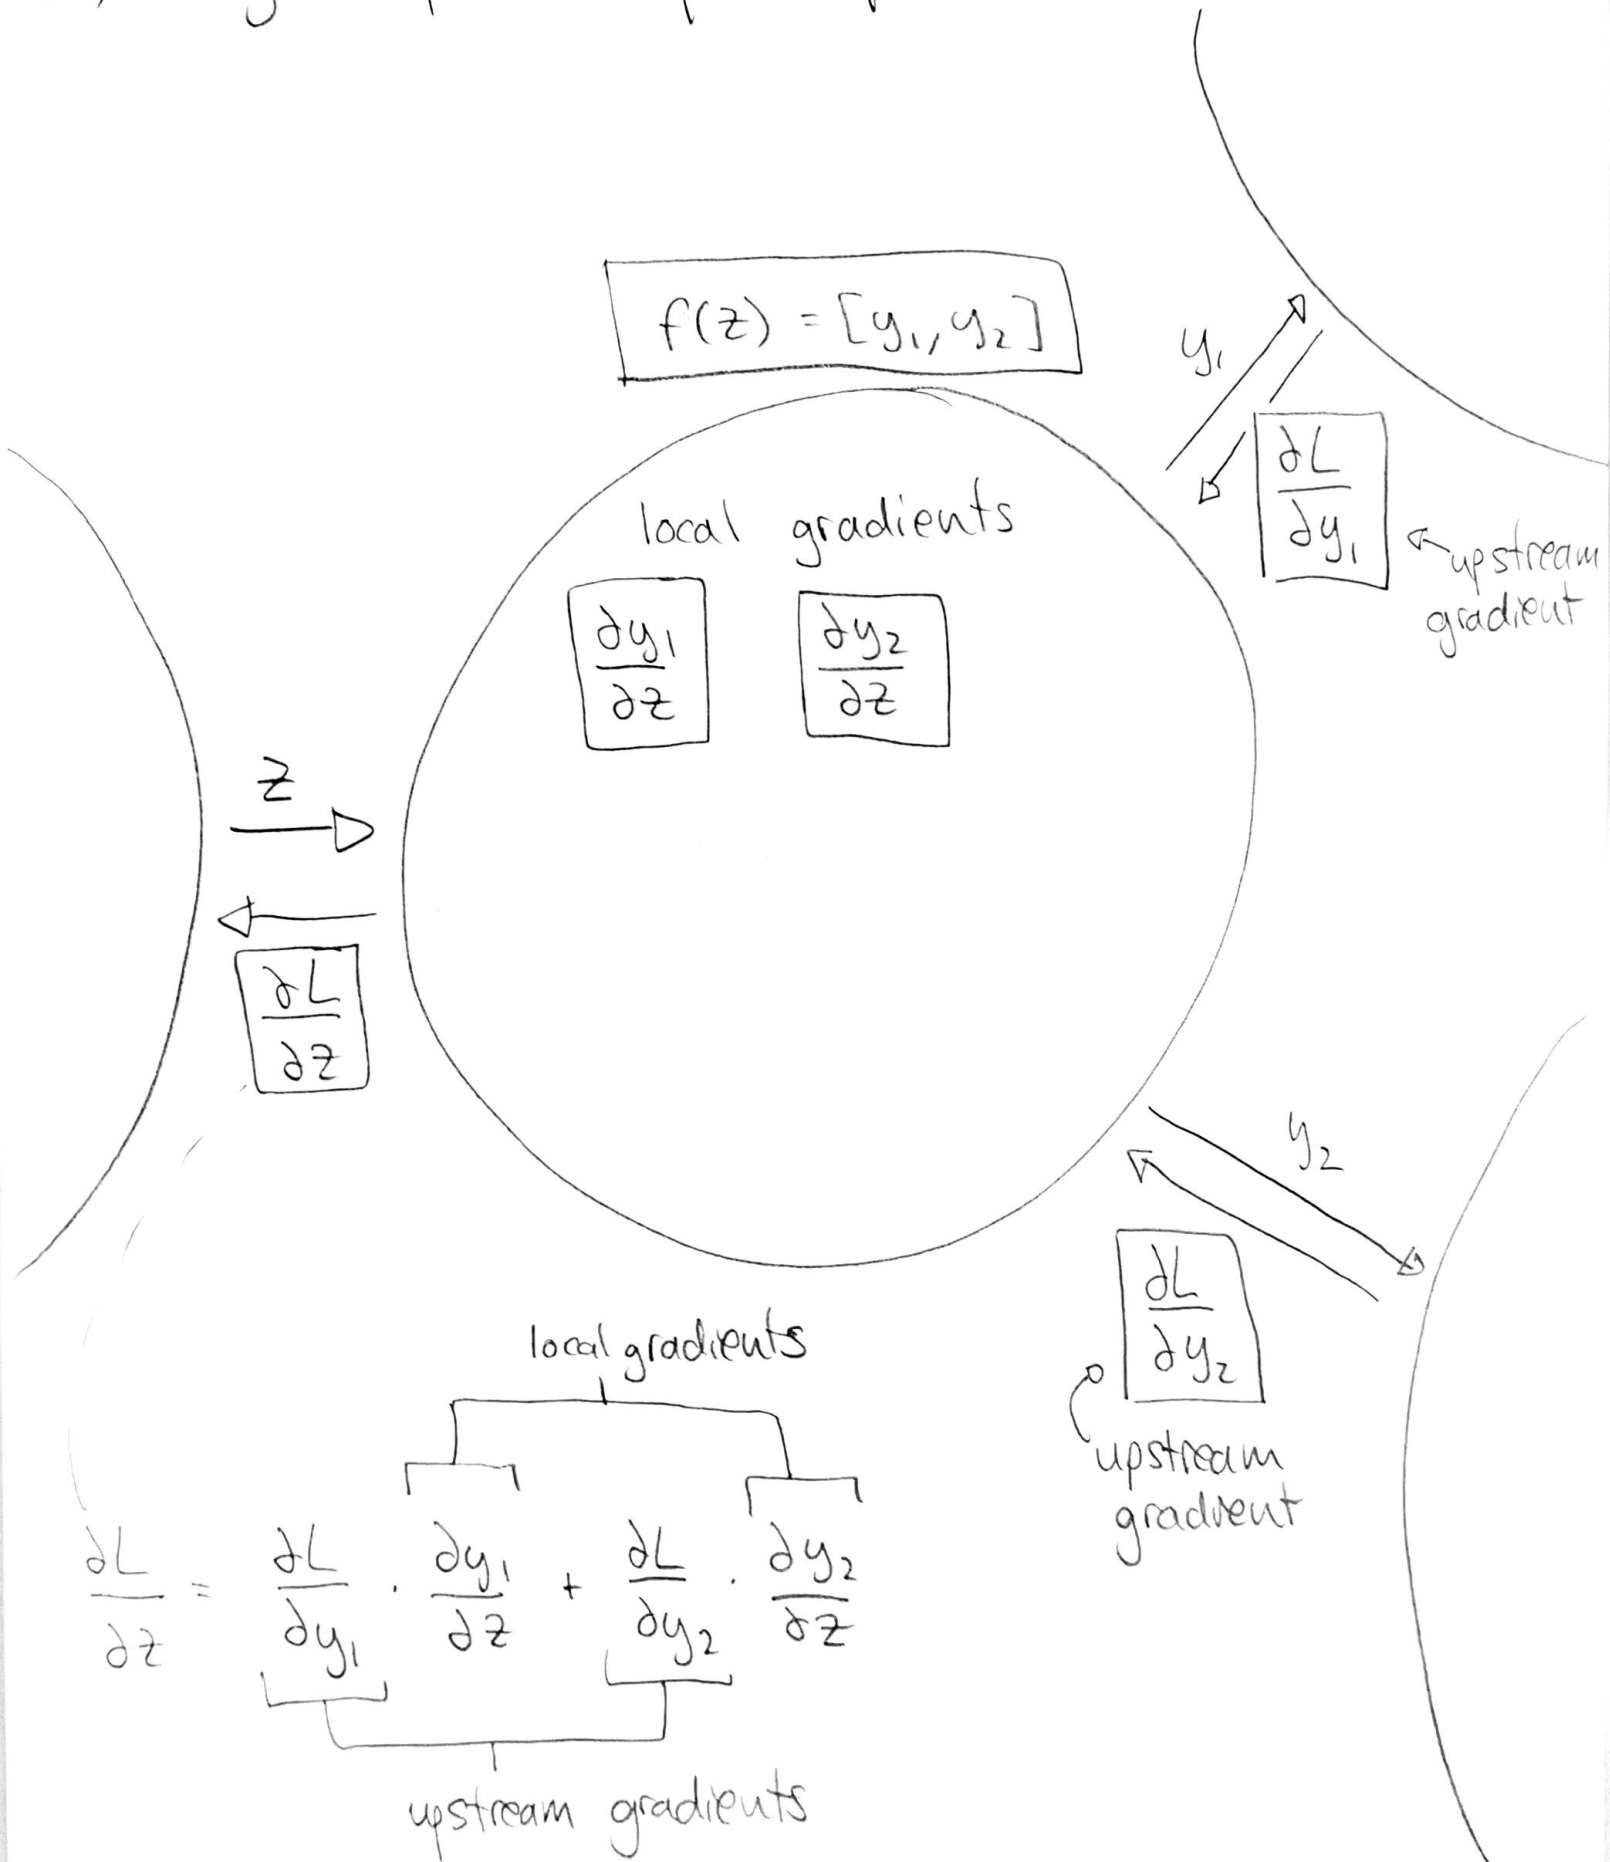 f(z) = [y₁, y₂]
y₁
∂L/∂y₁
upstream
gradient
local gradients
∂y₁/∂z ∂y₂/∂z
z
∂L/∂z
y₂
∂L/∂y₂
upstream
gradient
local gradients
∂L/∂z = ∂L/∂y₁ · ∂y₁/∂z + ∂L/∂y₂ · ∂y₂/∂z
upstream gradients